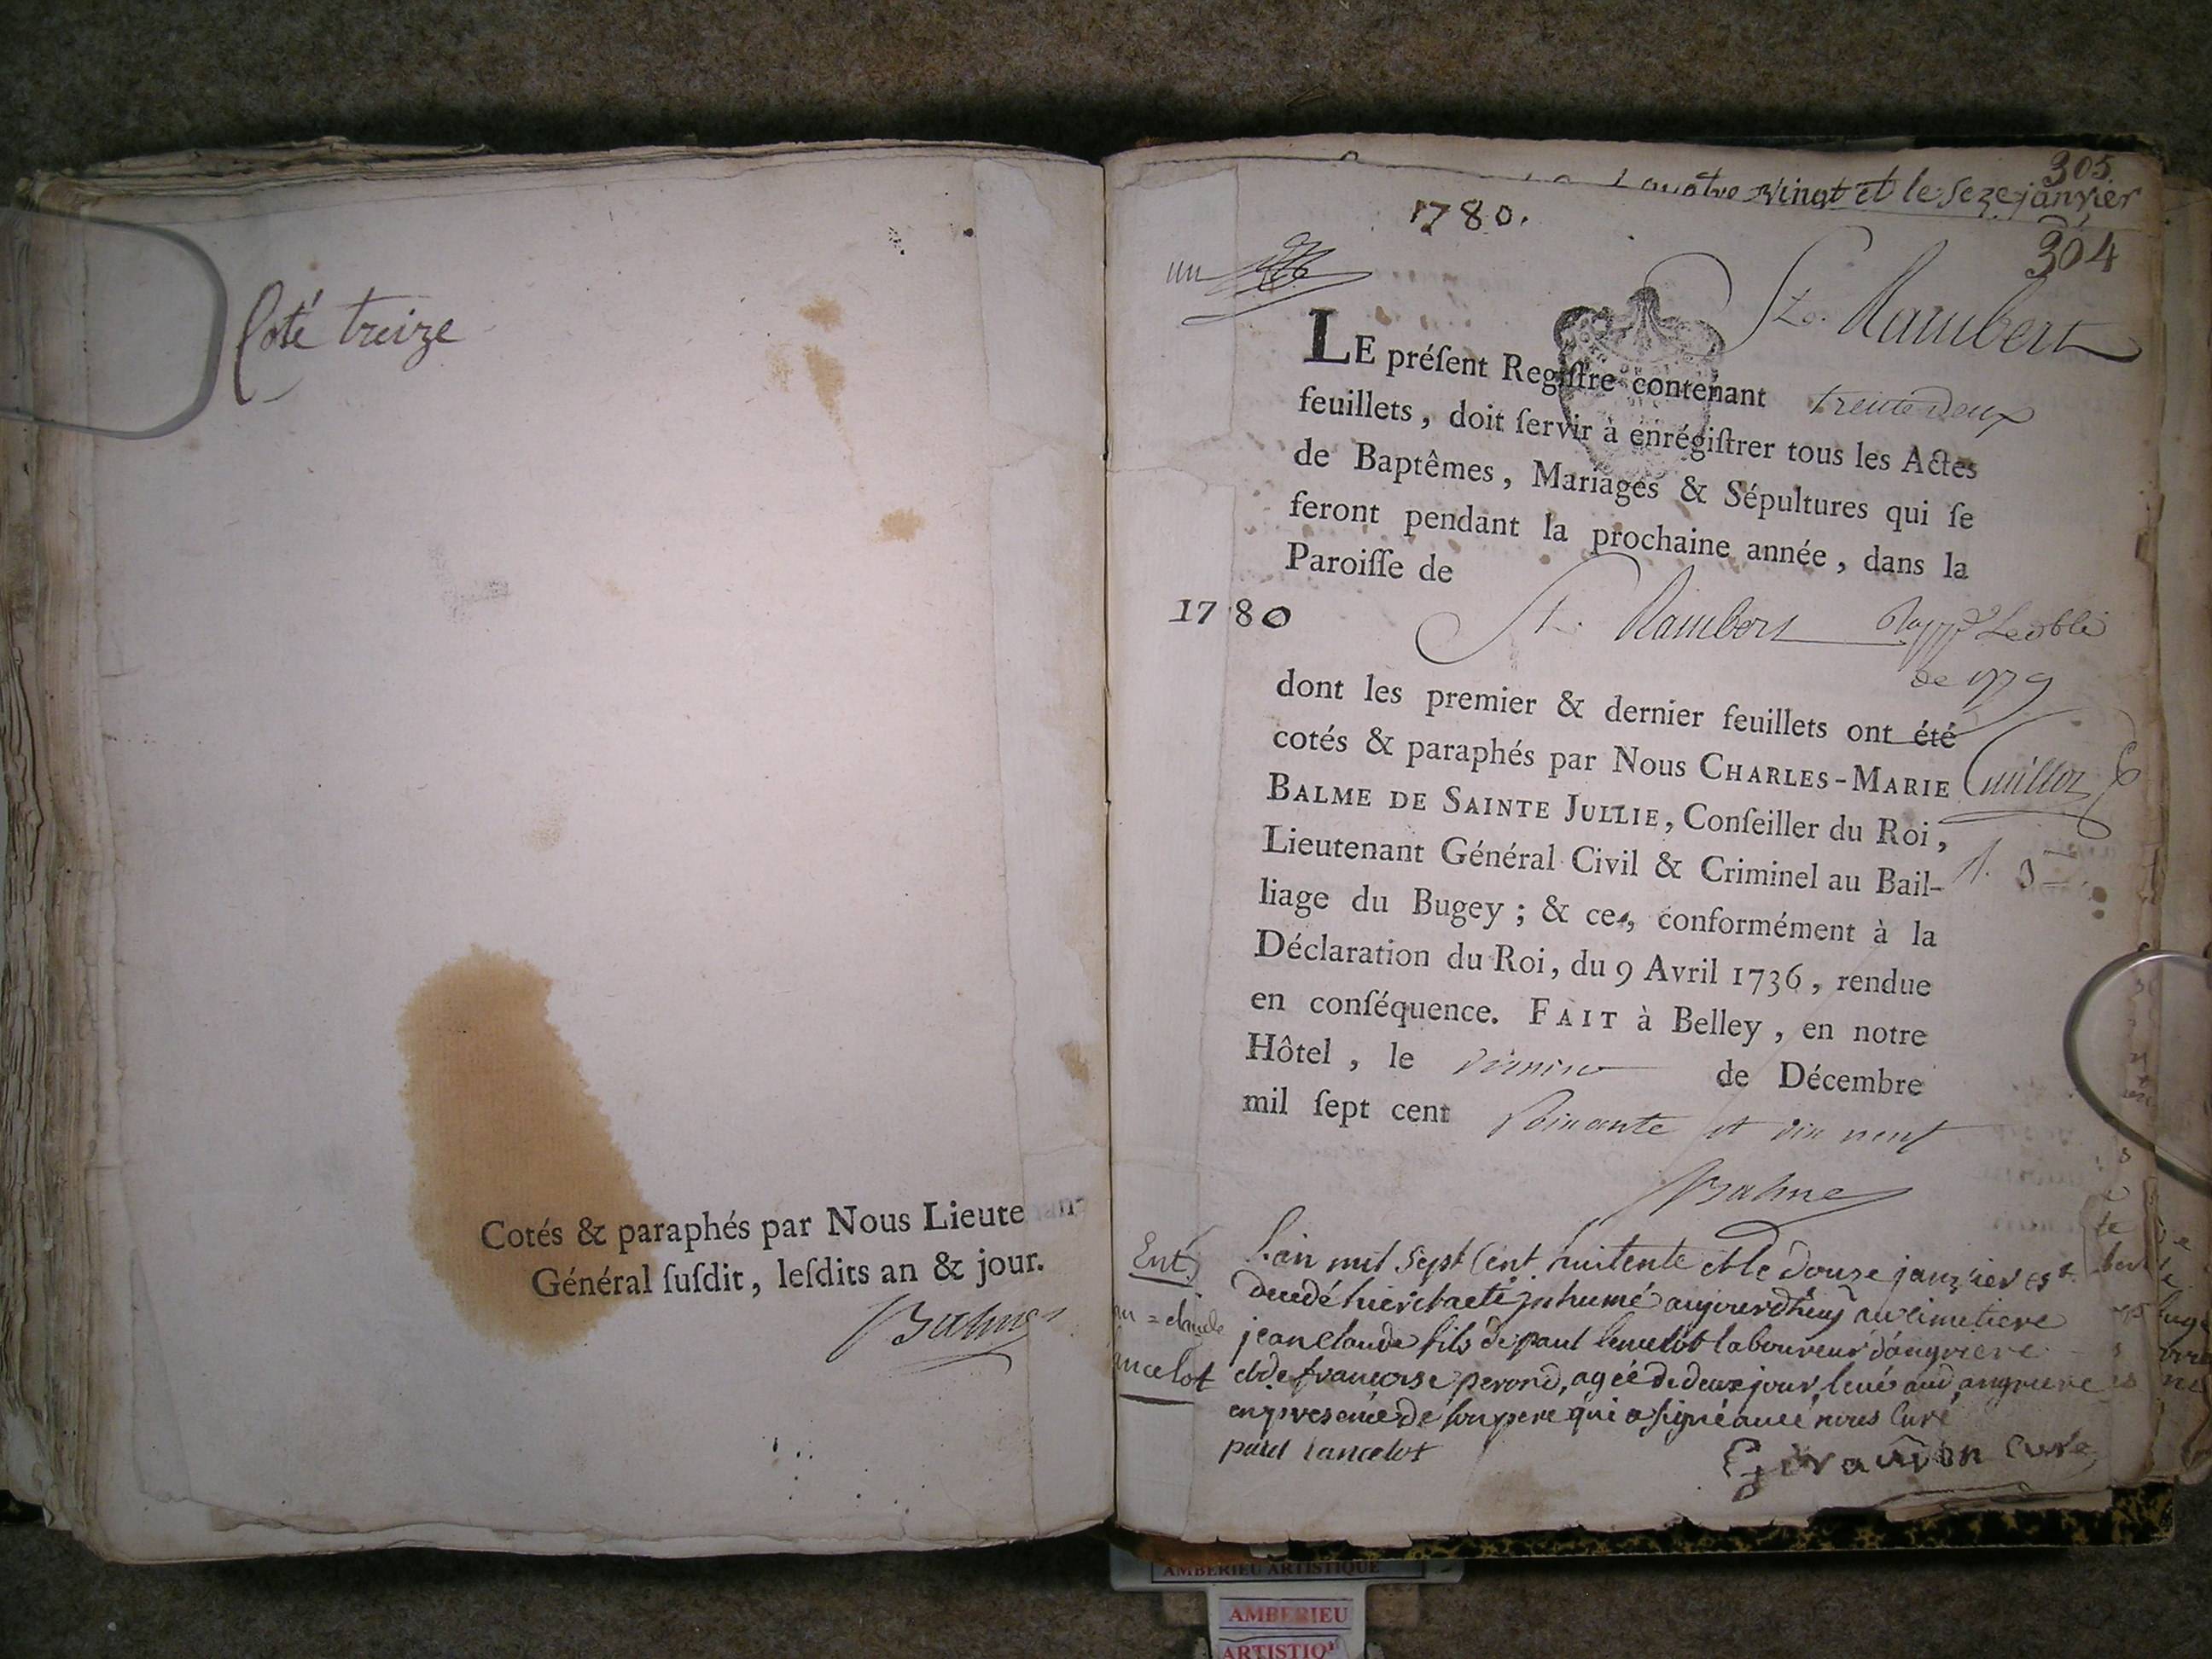 Coté treize
Cotés & paraphés par Nous Lieutenan-
Général ſuſdit, leſdits an & jour.
Balme
305
quatre vingt et le seze janvier
1780.
304
un
St. Rambert
LE préſent Regiſtre contenant trente deux
feuillets, doit ſervir à enrégiſtrer tous les Actes
de Baptêmes, Mariages & Sépultures qui ſe
feront pendant la prochaine année, dans la
Paroiſſe de
1780
St. Rambert
de 1779
dont les premier & dernier feuillets ont été
cotés & paraphés par Nous CHARLES-MARIE
BALME DE SAINTE JULLIE, Conſeiller du Roi,
Lieutenant Général Civil & Criminel au Bail-
liage du Bugey; & ce, conformément à la
Déclaration du Roi, du 9 Avril 1736, rendue
en conſéquence. FAIT à Belley, en notre
Hôtel, le de Décembre
mil ſept cent soixante et dix neuf
Balme
Ent.
claude
ancelot
L'an mil sept cent huitente et le douze janvier est
decedé hier et a eté inhumé aujourdhuy au cimetiere
jean claude fils de paul lancelot laboureur d'angriere
et de francoise perond, agéé de deux jour, levé aud angriere
en presence de son pere qui a signé avec nous Curé
paul lancelot
Curé
AMBERIEU ARTISTIQUE
AMBERIEU
ARTISTIQ